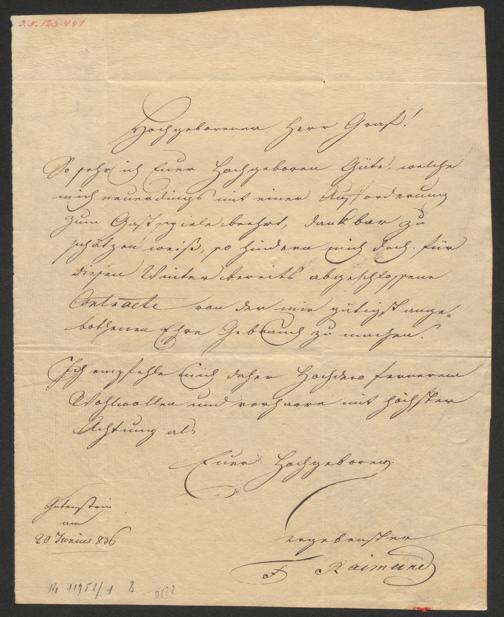 I.N. 123.461
Hochgeborener Herr Graf!
So sehr ich Euer Hochgeboren Güte, welche
mich neuerdings mit einer Aufforderung
zum Gastspiele beehrt, dankbar zu
schätzen weiß, so hindern mich doch für
diesen Winter bereits abgeschlossene
Contracte von der mir gütigst ange-
bothenen Ehre Gebrauch zu machen.
Ich empfehle mich daher Hochdero fernerem
Wohlwollen und verharre mit höchster
Achtung als
Euer Hochgeboren
Gutenstein
am
20 Junius 836
ergebenster
F Raimund
No 11952/1 B